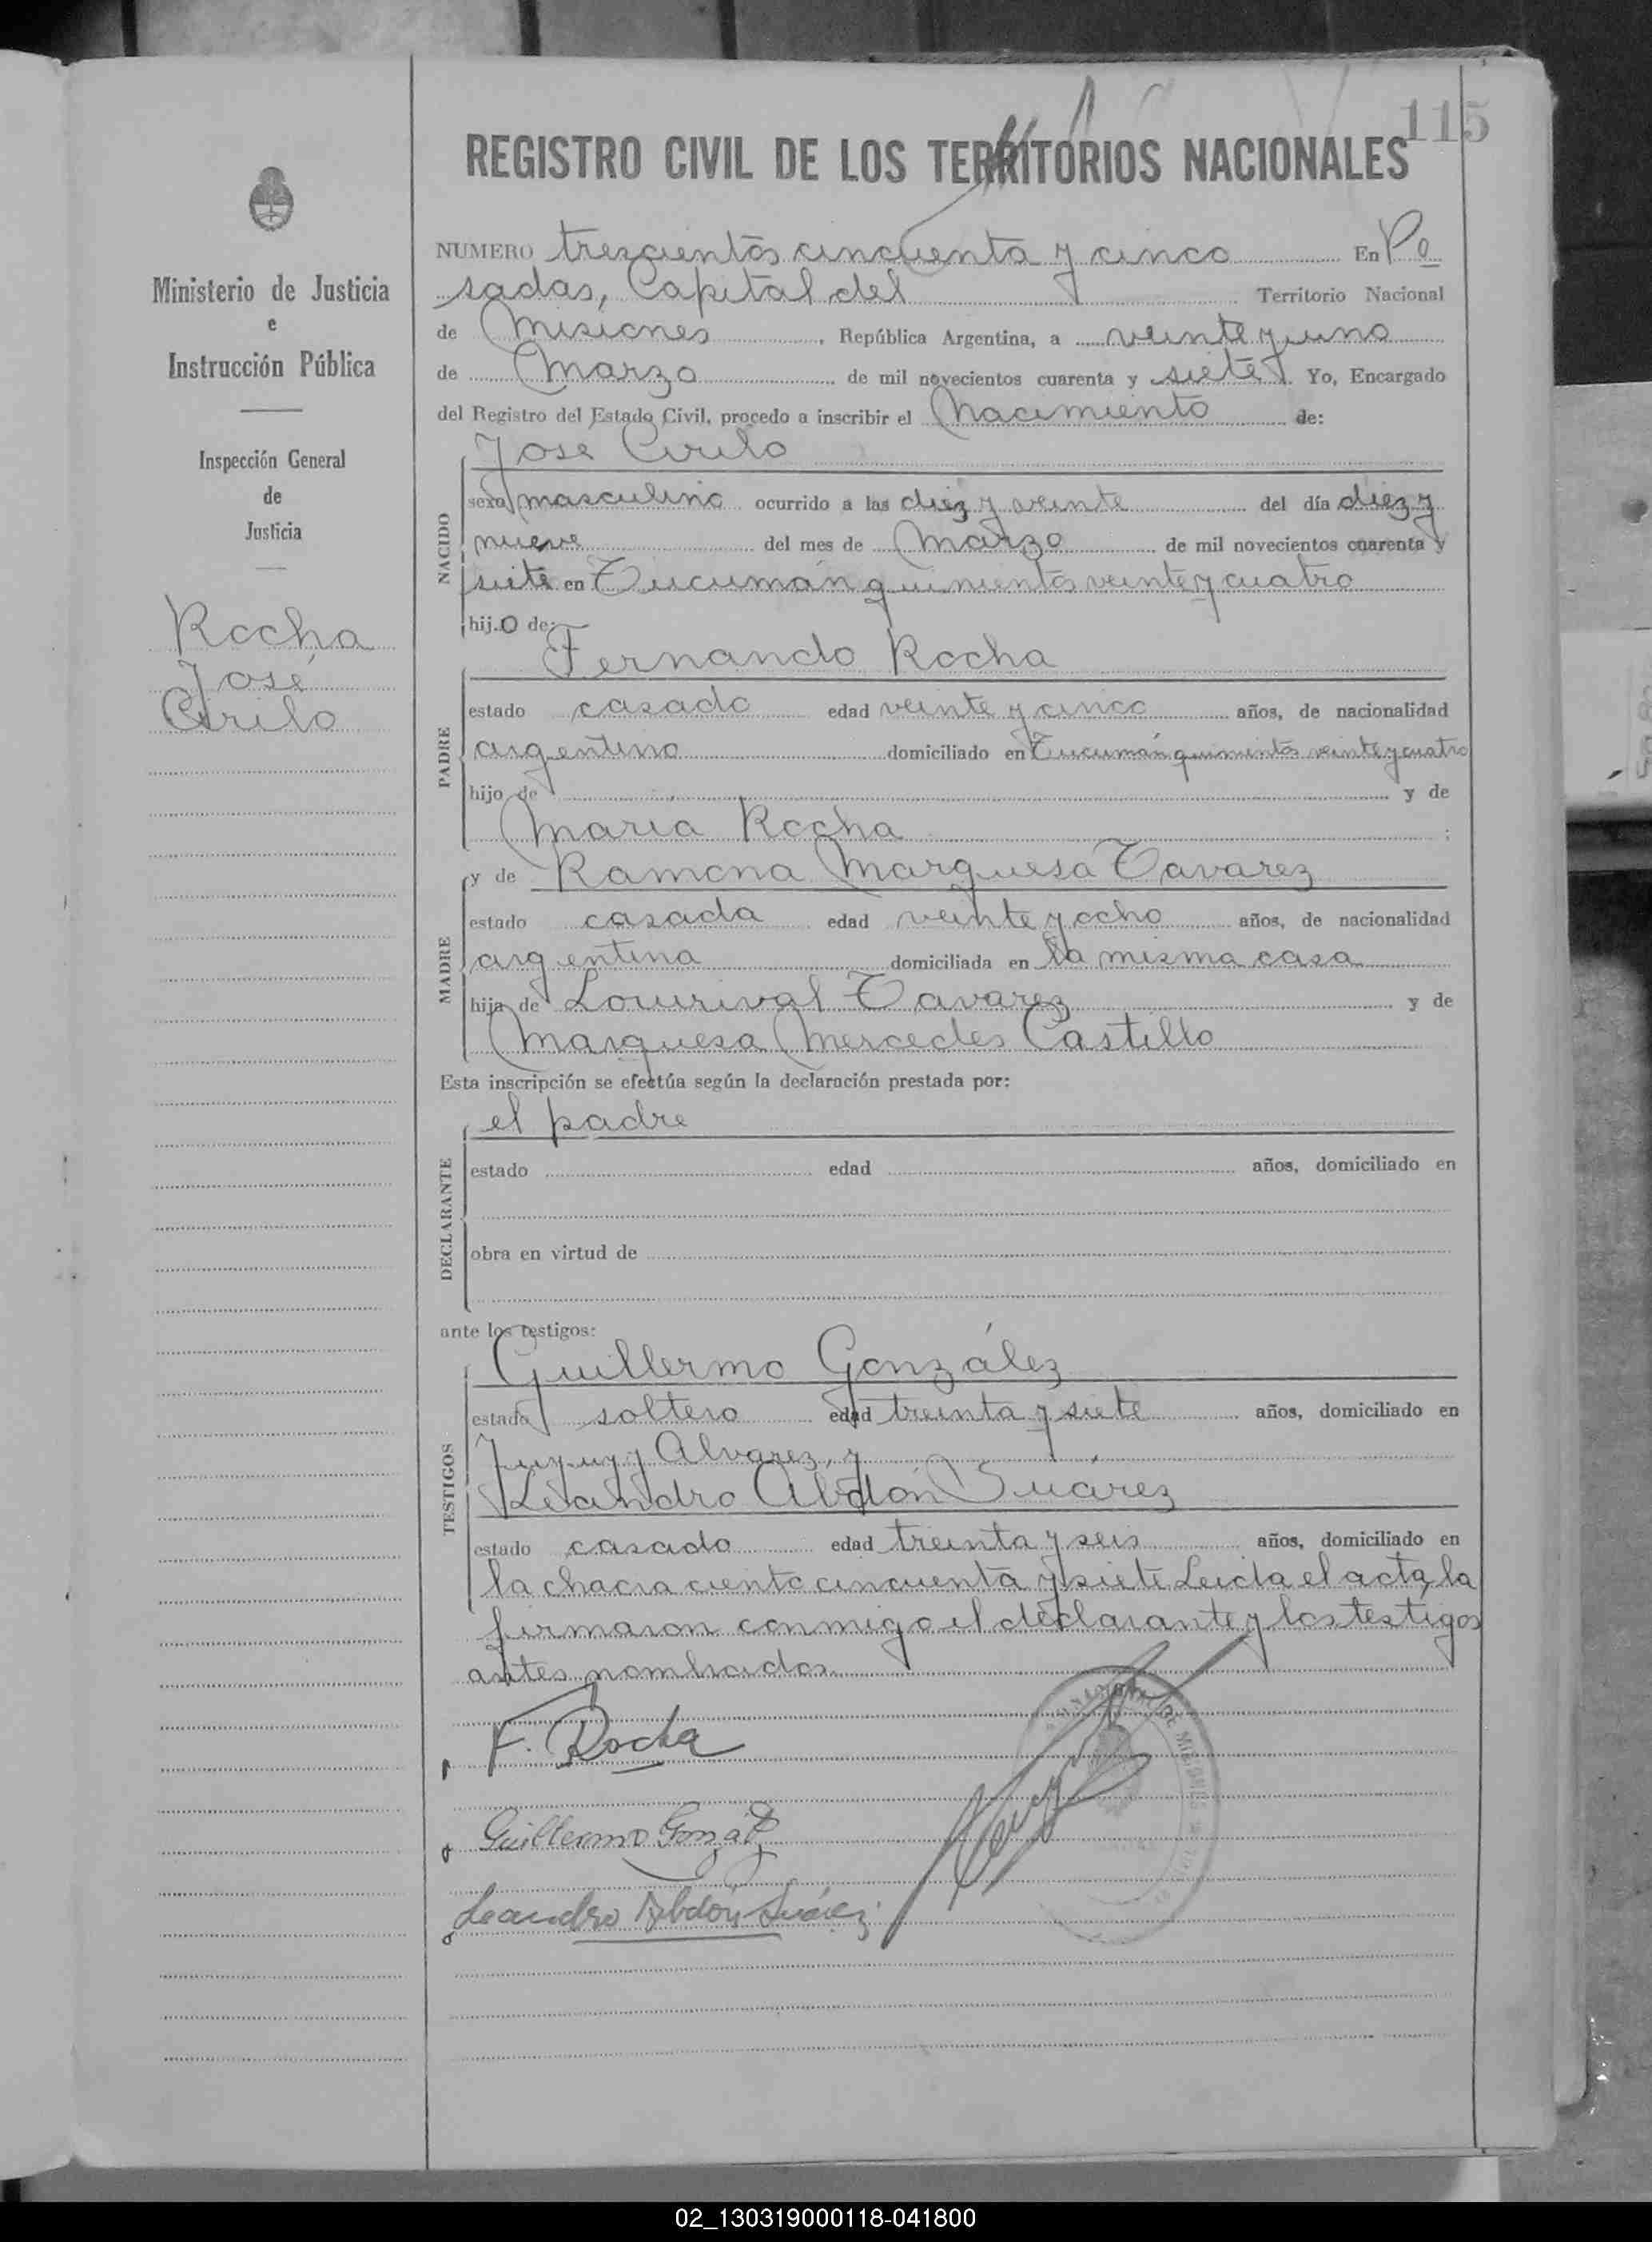 115
REGISTRO CIVIL DE LOS TERRITORIOS NACIONALES
Ministerio de Justicia
e
Instrucción Pública
Inspección General
de
Justicia
Rocha
José
Cirilo
NUMERO trescientos cincuenta y cinco En Po
sadas, Capital del Territorio Nacional
de Misiones, República Argentina, a veinte y uno
de Marzo de mil novecientos cuarenta y siete Yo, Encargado
del Registro del Estado Civil, procedo a inscribir el Nacimiento de:
NACIDO
Jose Cirilo
sexo masculino ocurrido a las diez y veinte del día diez y
nueve del mes de Marzo de mil novecientos cuarenta y
siete en Tucumán quinientos veinte y cuatro
hijo de:
PADRE
Fernando Rocha
estado casado edad veinte y cinco años, de nacionalidad
argentino domiciliado en Tucumán quinientos veinte y cuatro
hijo de y de
Maria Rocha ;
MADRE
y de Ramona Marquesa Tavarez
estado casada edad veinte y ocho años, de nacionalidad
argentina domiciliada en la misma casa
hija de Lourival Tavarez y de
Marquesa Mercedes Castillo
Esta inscripción se efectúa según la declaración prestada por:
DECLARANTE
el padre
estado edad años, domiciliado en
obra en virtud de
ante los testigos:
TESTIGOS
Guillermo González
estado soltero edad treinta y siete años, domiciliado en
Jujuy y Alvarez, y
Leandro Abdón Suárez
estado casado edad treinta y seis años, domiciliado en
la chacra ciento cincuenta y siete Leida el acta, la
firmaron conmigo el declarante y los testigos
antes nombrados.
F. Rocha
Guillermo Gonzál
Leandro Abdón Suárez
DE MISIONES
02_130319000118-041800